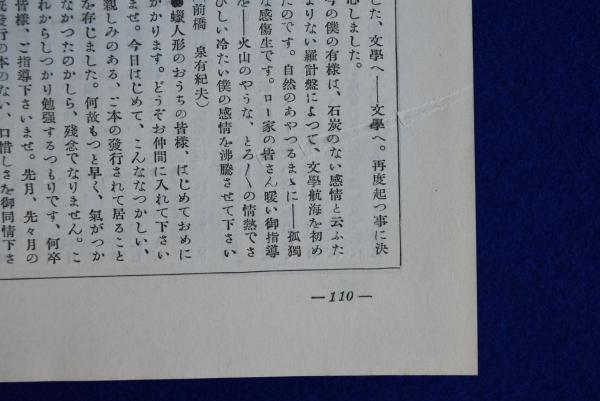 した、文學へ――文學へ。再度起つ事に決
心しました。
今の僕の有様は、石炭のない感情と云ふた
よりない羅計盤によつて、文學航海を初め
たのです。自然のあやつるまゝに――孤獨
な感傷生です。ロー家の皆さん暖い御指導
を――火山のやうな、とろ〳〵の情熱でさ
びしい冷たい僕の感情を沸騰させて下さい
前橋 泉有紀夫）
●蠟人形のおうちの皆様、はじめておめに
かかります。どうぞお仲間に入れて下さい
ませ。今日はじめて、こんななつかしい、
親しみのある、ご本の發行されて居ること
を存じました。何故もつと早く、氣がつか
なかつたのかしら、殘念でなりません。こ
れからしつかり勉强するつもりです、何卒
皆様、ご指導下さいませ。先月、先々月の
發行の本のない、口惜しさを御同情下さ
―110―